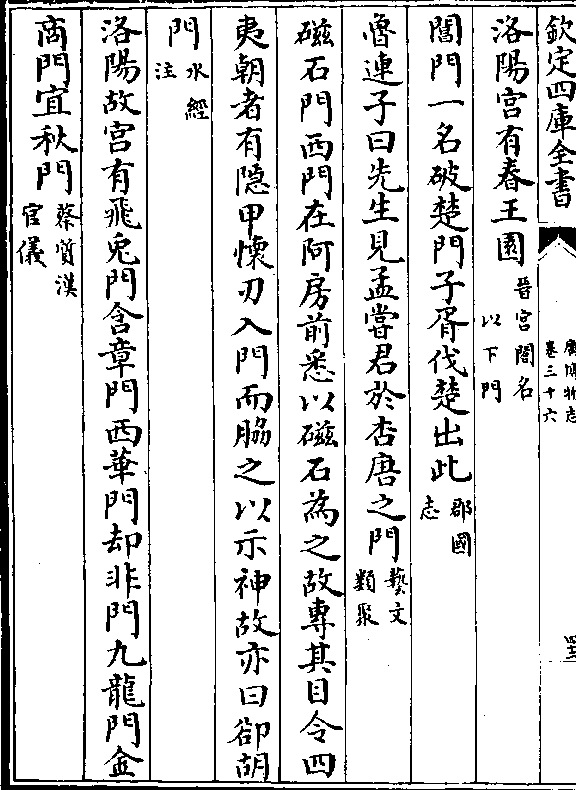 欽定四庫全書
廣博物志
卷三十六
洛陽宮有春王園晉宮閣名
以下門
閶門一名破楚門子胥伐楚出此郡國
志
魯連子曰先生見孟嘗君於杏唐之門藝文
類聚
磁石門西門在阿房前悉以磁石為之故專其目令四
夷朝者有隱甲懷刃入門而脇之以示神故亦曰卻胡
門水經
注
洛陽故宮有飛兎門含章門西華門却非門九龍門金
商門宜秋門蔡質漢
官儀